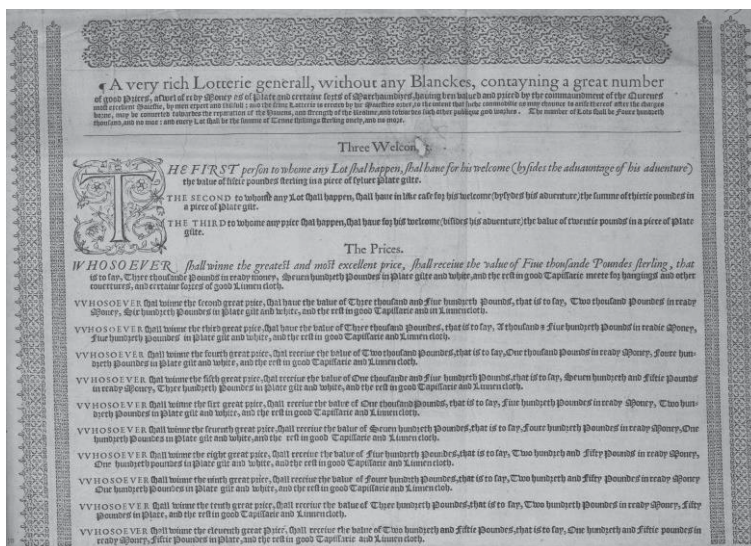 ¶A very rich Lotterie generall, without any Blanckes, contayning a great number
of good Prices, aswel of redy Money as of Plate and certaine sorts of Marchaundizes, having ben valued and priced by the commaundment of the Queenes
most excellent Maiestie, by men expert and skilfull: and the same Lotterie is erected by her Maiesties order, to the intent that suche commoditie as may chaunce to arise thereof after the charges
borne, may be converted towardes the reparation of the Havens, and strength of the Realme, and towardes such other publique good workes. The number of Lots shall be Foure hundreth
thousand, and no mo: and every Lot shall be the summe of Tenne shillings sterling onely, and no more.
Three Welcomes.
THE FIRST person to whome any Lot shal happen, shall haue for his welcome (bysides the aduauntage of his aduenture)
the value of fiftie poundes sterling in a piece of sylure Plate gilte.
THE SECOND to whome any Lot shall happen, shall haue in like case for his welcome (bysydes his aduenture) the summe of thirtie poundes in
a piece of Plate gilte.
THE THIRD to whome any price shal happen, shal haue for his welcome (bisides his aduenture) the value of twentie pounds in a piece of Plate
gilte.
The Prices.
WHOSOEVER shall winne the greatest and most excellent price, shall receiue the value of Fiue thousande Poundes sterling, that
is to say, Three thousande Pounds in ready money, Seuen hundreth Poundes in Plate gilte and white, and the rest in good Tapissarie meete for hangings and other
couertures, and certaine sortes of good Linnen cloth.
VVHOSOEVER shall winne the second great price, shal haue the value of Three thousand and Fiue hundreth Pounds, that is to say, Two thousand Poundes in ready
Money, Six hundreth Poundes in Plate gilt and white, and the rest in good Tapissarie and in Linnen cloth.
VVHOSOEVER shall winne the third great price, shal haue the value of Three thousand Pounds, that is to say, A thousand & Fiue hundreth Pounds in readie Money,
Fiue hundreth Poundes in Plate gilt and white, and the rest in good Tapissarie and Linnen cloth.
VVHOSOEVER shall winne the fourth great price, shal receiue the value of Two thousand Pounds, that is to say, One thousand Pounds in ready Money, Foure hun-
dreth Poundes in Plate gilt and white, and the rest in good Tapissarie and Linnen cloth.
VVHOSOEVER shall winne the fifth great price, shall receiue the value of One thousand and Fiue hundreth Pounds, that is to say, Seuen hundreth and Fiftie Pounds
in ready Money, Three hundreth Poundes in Plate gilt and white, and the rest in good Tapissarie and Linnen cloth.
VVHOSOEVER shall winne the sixt great price, shall receiue the value of One thousand Pounds, that is to say, Fiue hundreth Pounds in ready Money, Two hun-
dreth Poundes in Plate gilt and white, and the rest in good Tapissarie and Linnen cloth.
VVHOSOEVER shall winne the seuenth great price, shall receiue the value of Seuen hundreth Poundes, that is to say, Foure hundreth Pounds in ready Money, One
hundreth Poundes in Plate gilt and white, and the rest in good Tapissarie and Linnen cloth.
VVHOSOEVER shall winne the eight great price, shall receiue the value of Fiue hundreth Poundes, that is to say, Two hundreth and Fifty Pounds in ready Money,
One hundreth Poundes in Plate gilt and white, and the rest in good Tapissarie and Linnen cloth.
VVHOSOEVER shall winne the ninth great price, shall receiue the value of Foure hundreth Poundes, that is to say, Two hundreth and Fifty Poundes in ready Money
One hundreth Poundes in Plate gilt and white, and the rest in good Tapissarie and Linnen cloth.
VVHOSOEVER shall winne the tenth great price, shall receiue the value of Three hundreth Poundes, that is to say, Two hundreth Pounds in ready Money, Fifty
Poundes in Plate, and the rest in good Tapissarie and Linnen cloth.
VVHOSOEVER shall winne the eleuenth great price, shall receiue the value of Two hundreth and Fiftie Poundes, that is to say, One hundreth and Fiftie poundes in
ready Money, Fiftie Poundes in Plate, and the rest in good Tapissarie and Linnen cloth.